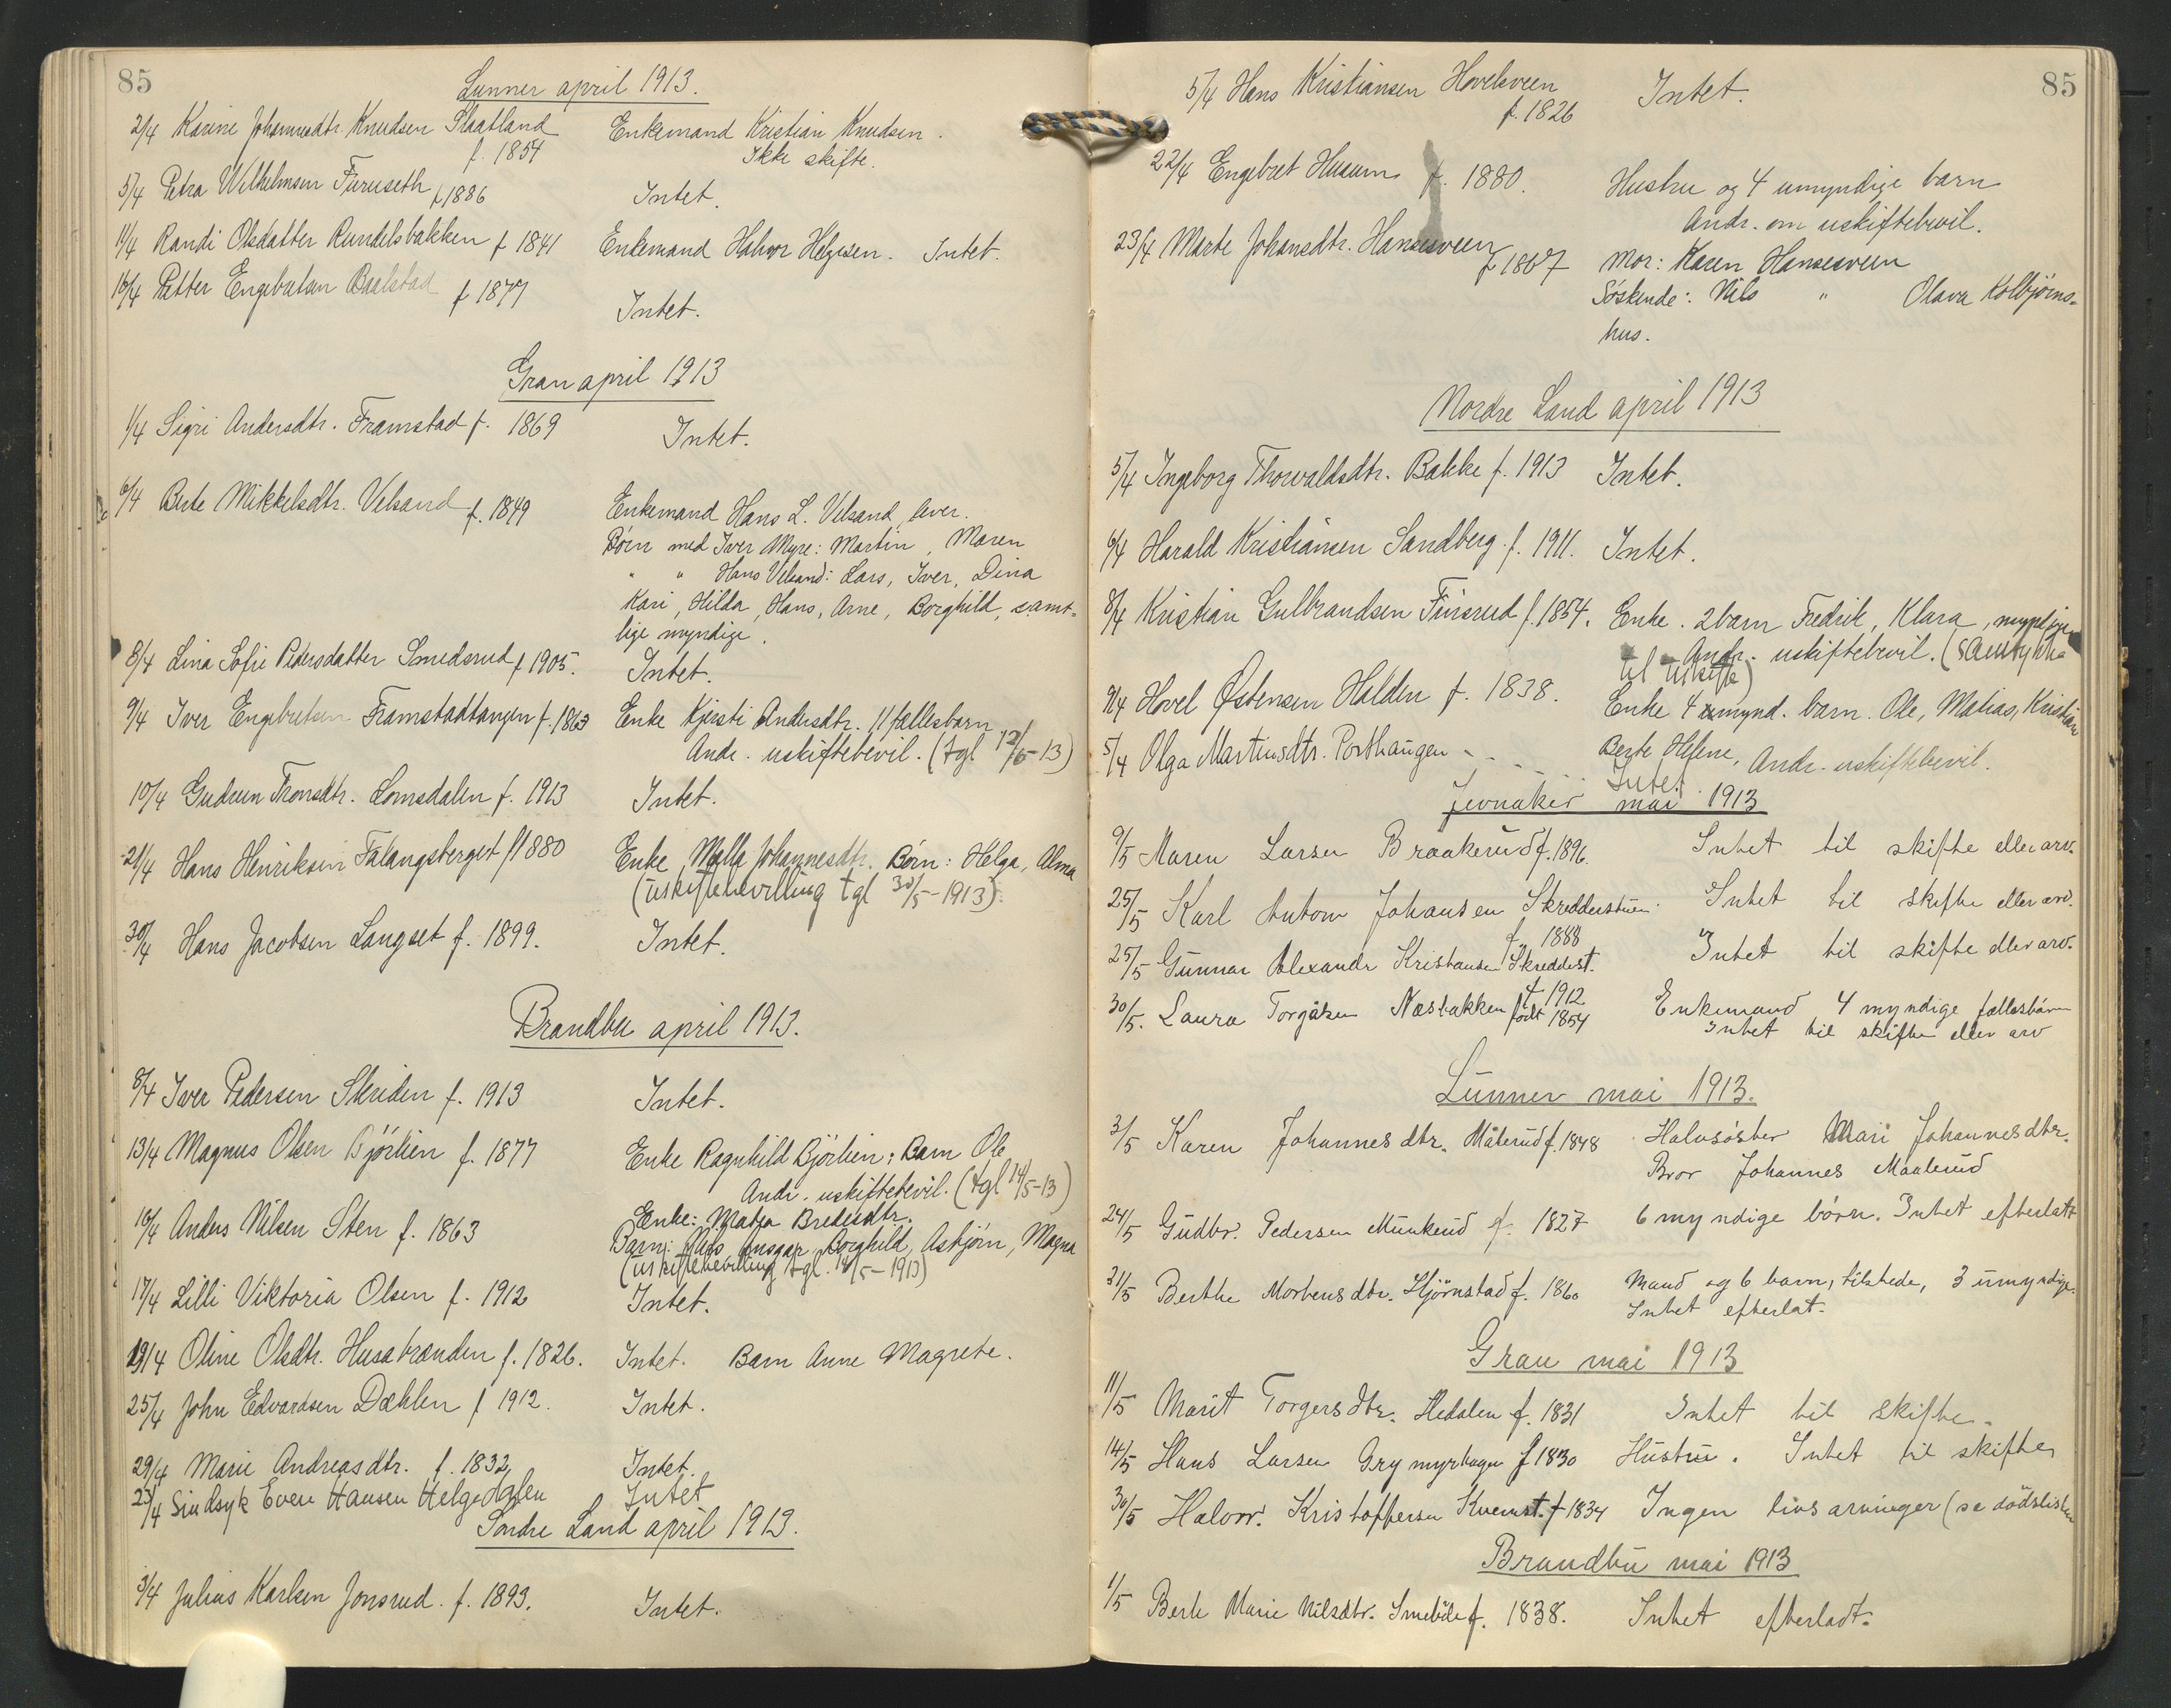 85
Lunner april 1913.
2/4 Karine Johannesdtr. Knudsen Slaatland f. 1854 Enkemand Kristian Knudsen.
Ikke skifte.
5/4 Petra Wilhelmsen Furuseth f. 1886 Intet.
11/4 Randi Olsdatter Rundelsbakken f 1841 Enkemand Halvor Helgesen. Intet.
16/4 Petter Engebretsen Baalstad f 1877 Intet.
Gran april 1913
1/4 Sigri Andersdtr. Framstad f. 1869 Intet.
6/4 Berte Mikkelsdtr. Velsand f. 1849 Enkemand Hans L. Velsand, lever.
Børn med Iver Myre: Martin, Maren
" " Hans Velsand: Lars, Iver, Dina
Kari, Hilda, Hans, Arne, Borghild, samt-
lige myndige.
8/4 Lina Sofie Pedersdatter Smedsrud f 1905. Intet.
9/4 Iver Engebretsen Framstadtangen f. 1863 Enke Kjersti Andersdtr. 11 fællesbarn
Andr. uskiftebevil. (tgl 12/5-13)
10/4 Gudrun Tronsdtr. Lomsdalen f. 1913 Intet.
21/4 Hans Henriksen Falangsberget f 1880 Enke Mella Johannesdtr. Børn: Helga, Alma
(uskiftebevilling tgl 30/5-1913).
30/4 Hans Jacobsen Langset f. 1899. Intet.
Brandbu april 1913.
8/4 Iver Pedersen Skriden f. 1913 Intet.
13/4 Magnus Olsen Bjørlien f. 1877 Enke Ragnhild Bjørlien: Barn Ole
Andr. uskiftebevil. (tgl 14/5-13)
16/4 Anders Nilsen Sten f. 1863 Enke: Matea Bredesdtr.
Barn: Nils, Ansgar, Borghild, Asbjørn, Magna
(uskiftebevilling tgl. 14/5-1913)
17/4 Lilli Viktoria Olsen f. 1912 Intet.
19/4 Oline Olsdtr. Husabranden f. 1826. Intet. Barn Anne Magrete.
25/4 John Edvardsen Dæhlen f 1912. Intet.
29/4 Marie Andreasdtr. f. 1832 Intet.
23/4 Sindsyk Even Hansen Helgedalen Intet
Søndre Land april 1913.
3/4 Julius Karlsen Jonsrud. f. 1893. Intet.
85
5/4 Hans Kristiansen Hovelsveen f. 1826 Intet.
22/4 Engebret Husum f. 1880. Hustru og 4 umyndige barn
Andr. om uskiftebevil.
23/4 Marte Johansdtr. Hansesveen f 1867 Mor: Karen Hansesveen
Søskende: Nils " Olava Kolbjørns-
hus.
Nordre Land april 1913
5/4 Ingeborg Thorvaldsdtr. Bakke f. 1913 Intet.
6/4 Harald Kristiansen Sandberg f. 1911. Intet.
8/4 Kristian Gulbrandsen Finsrud f. 1854. Enke. 2 barn Fredrik, Klara, myndige
Andr. uskiftebevil. (samtykke
til uskifte)
9/4 Hovel Østensen Halden f. 1838. Enke 4 mynd. barn. Ole, Matias, Kristian
Berte Helene, Andr. uskiftebevil.
5/4 Olga Martinsdtr. Porthaugen - - - - Intet.
Jevnaker mai 1913
9/5 Maren Larsen Braakerud f. 1896. Intet til skifte eller arv.
25/5 Karl Anton Johansen Skredderstuen f 1888 Intet til skifte eller arv.
25/5 Gunnar Alexandr Kristiansen Skreddest. f 1912 Intet til skifte eller arv.
30/5. Laura Torgersen Næsbakken født 1854 Enkemand 4 myndige fællesbørn
Intet til skifte eller arv
Lunner mai 1913.
3/5 Karen Johannesdtr. Målerud f. 1848 Halvsøster Mari Johannesdtr.
Bror Johannes Maalerud
24/5 Gudbr. Pedersen Munkerud f. 1827 6 myndige børn. Intet efterlatt
31/5 Berthe Mortensdtr. Hjørnstad f. 1860 Mand og 6 barn, tilstede, 3 umyndige.
Intet efterlat.
Gran mai 1913
11/5 Marit Torgersdtr. Hedalen f. 1831 Intet til skifte.
14/5 Hans Larsen Grymyrhagen f 1830 Hustru. Intet til skifte
30/5 Halvor. Kristoffersen Kvernst. f 1834 Ingen livsarvinger (se dødslisten
Brandbu mai 1913
1/5 Berte Marie Nilsdtr. f. 1838. Intet efterladt.